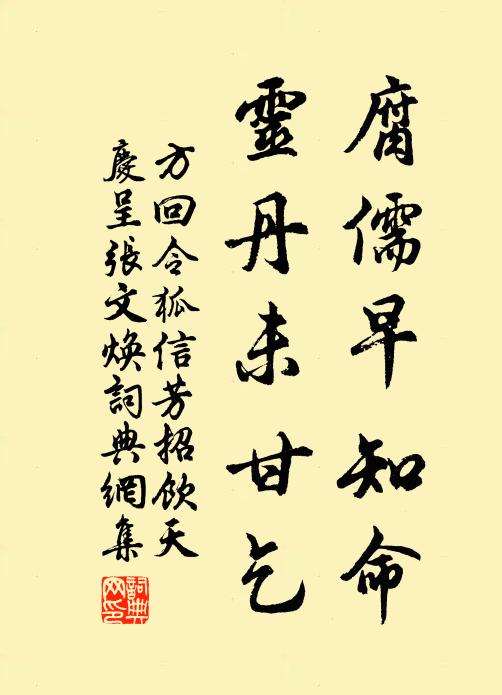 腐儒早知命
靈丹未甘乞
方回令狐信芳招飲天
慶呈張文煥詞典網集
詞典網印